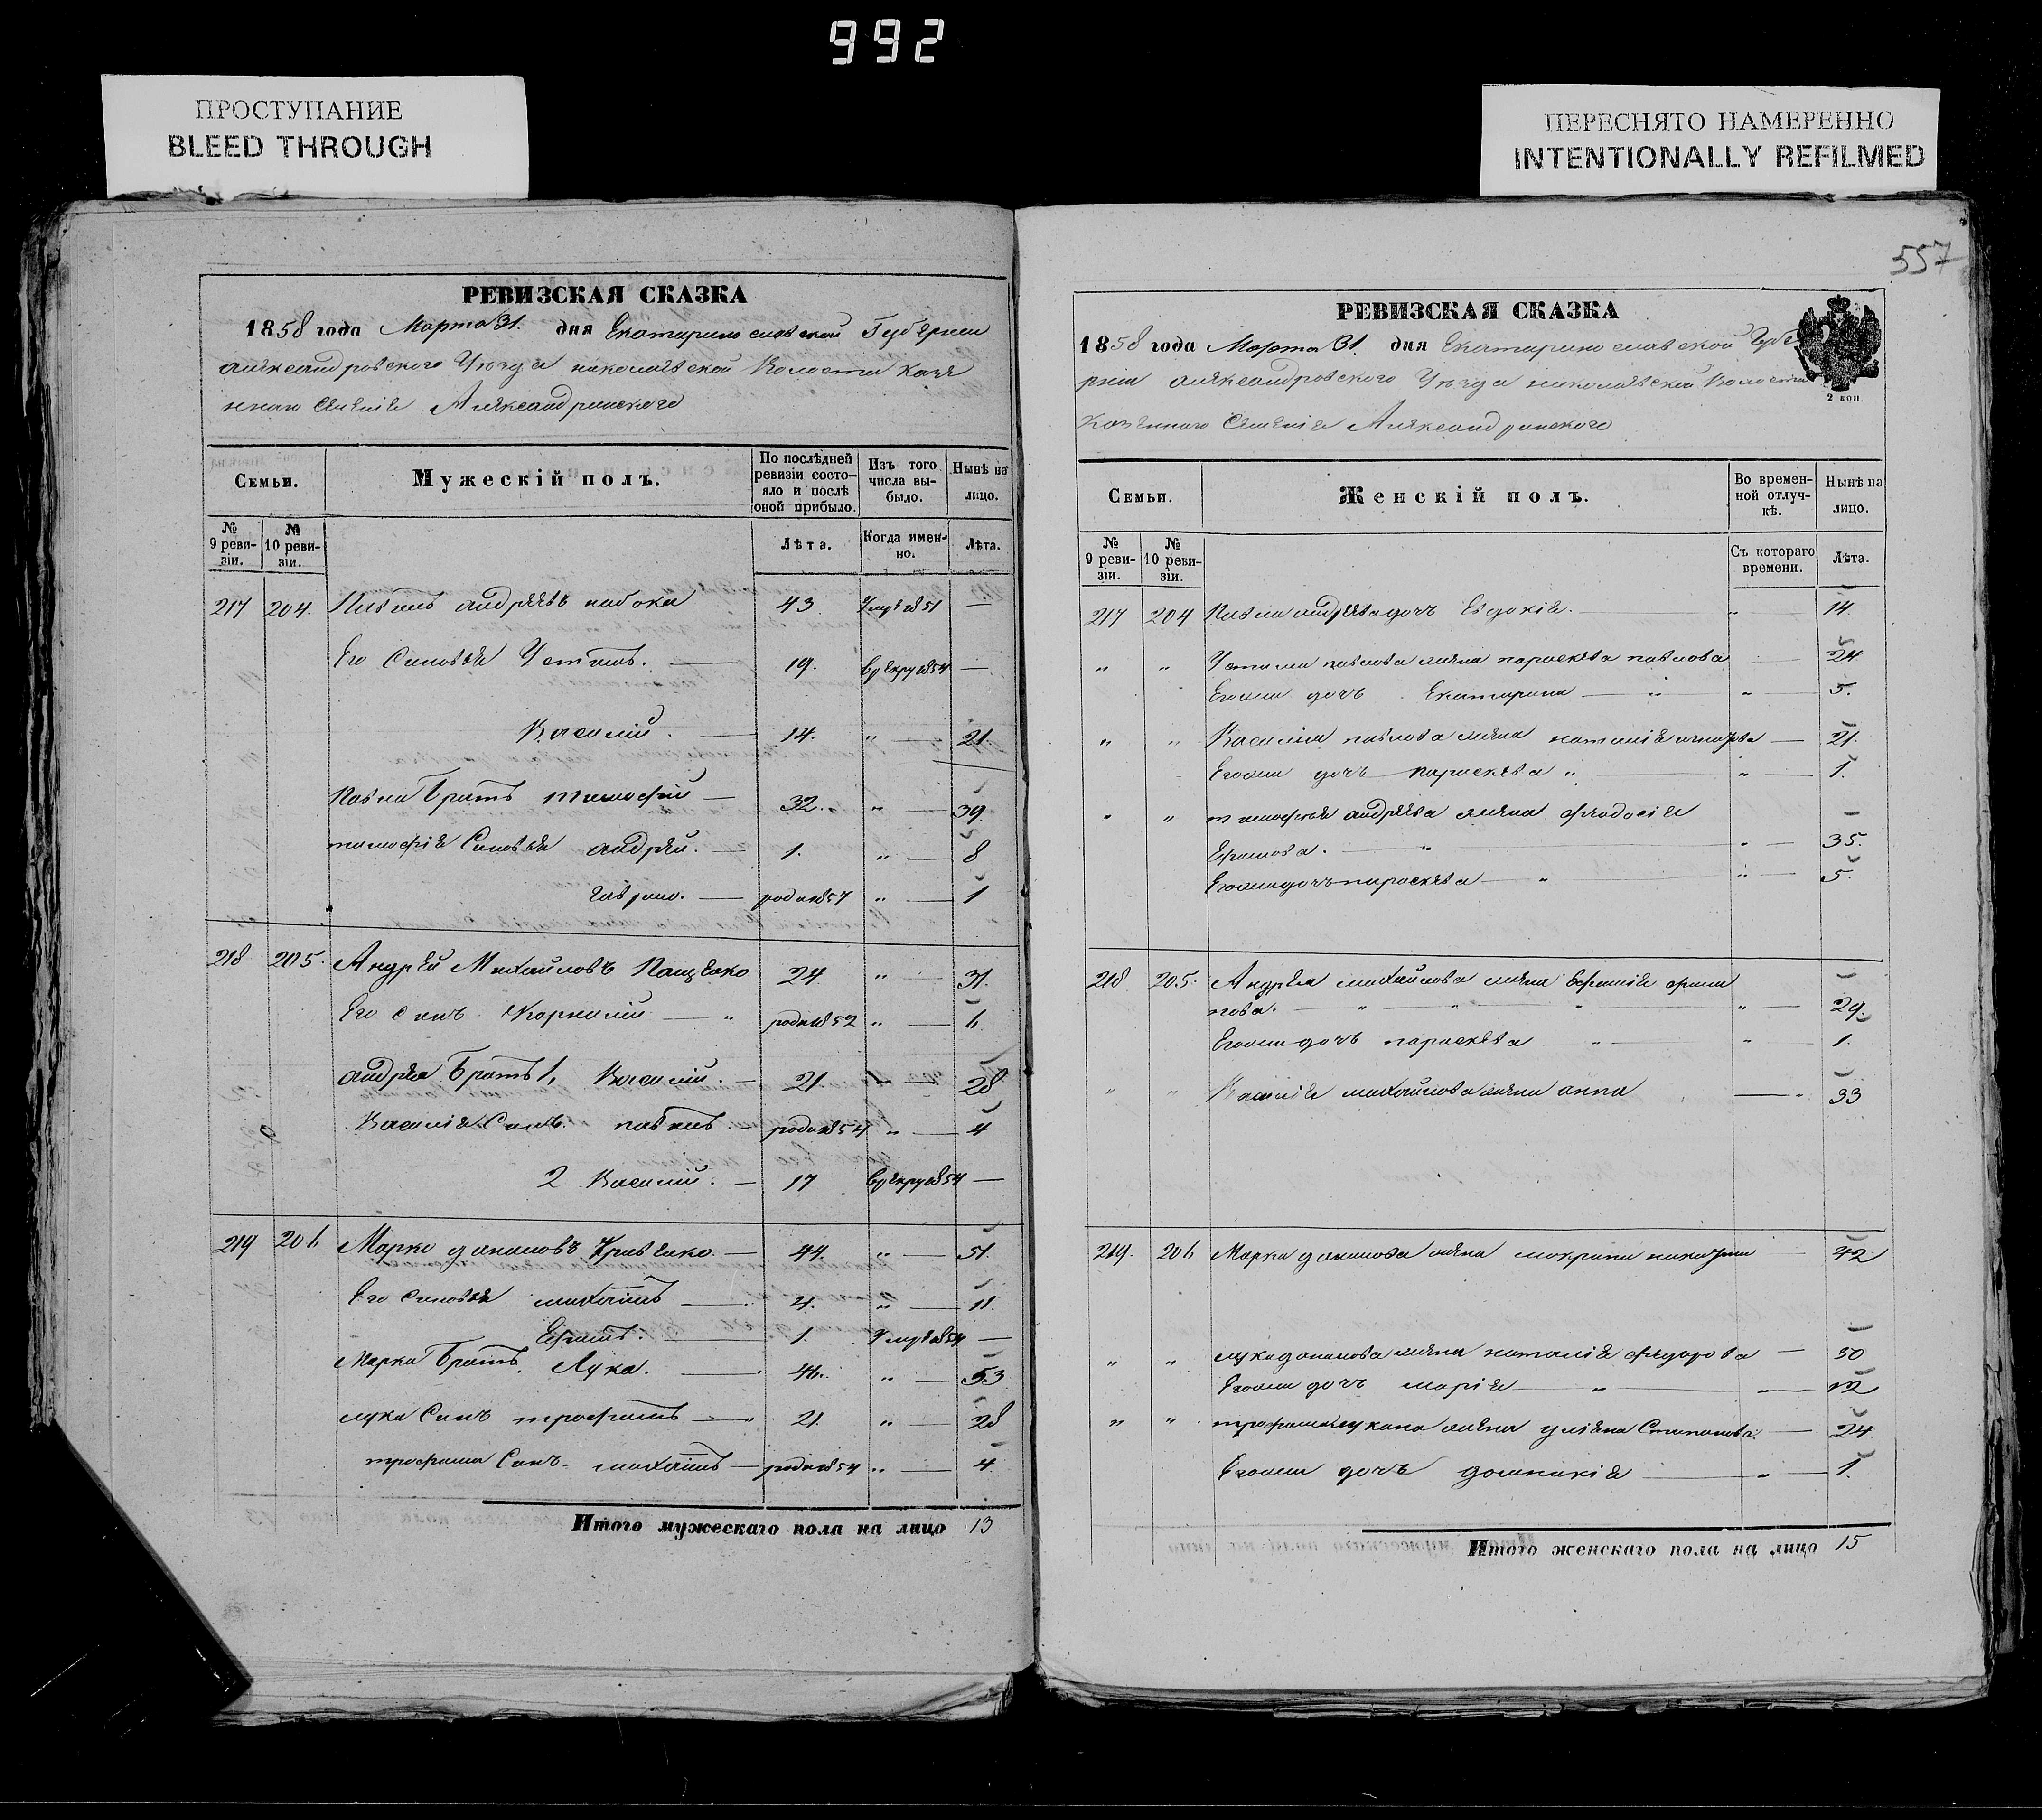 992
ПРОСТУПАНИЕ
BLEED THROUGH
ПЕРЕСНЯТО НАМЕРЕННО
INTENTIONALLY REFILMED
РЕВИЗСКАЯ СКАЗКА
1858 года Марта 31. дня Екатеринославской Губернии
Александровского Уѣзда Николаевской Волости казе
ннаго Селенія Александринского
Семьи.
Мужескій полъ.
По послѣдней ревизіи состояло и послѣ оной прибыло.
Изъ того числа выбыло.
Нынѣ на лицо.
№ 9 ревизіи.
№ 10 ревизіи.
Лѣта.
Когда именно.
Лѣта.
217 204. Павелъ андреевъ набока 43 Умре 1851 —
Его Сыновья Устимъ. — 19. врекру 1854 —
Василій. — 14. „ — 21.
Павла Братъ тимофей — 32. „ — 39.
тимофея Сыновья андрей. — 1. „ — 8
гаврило. — роди 1857 „ — 1
218 205. Андрей Михайловъ Пащенко 24 „ — 31.
Его Сынъ Корнилий — „ роди 1852 „ — 6
андрея Братъ 1, Василій. — 21. „ — 28
Василія Сынъ. павелъ. — роди 1854 „ — 4
2 Василій. — 17 врекру 1854 —
219 206 Марко даниловъ Кривенко. — 44. „ — 51.
Его Сыновья михаилъ — 4. „ — 11.
Ефимъ. — 1. Умре 1854 —
Марка Братъ. Лука. — 46. „ — 53
лука Сынъ трофимъ — „ 21. „ — 28
трофима Сынъ. михаилъ — роди 1854 „ — 4
Итого мужескаго пола на лицо 13
557
РЕВИЗСКАЯ СКАЗКА
1858 года Марта 31. дня Екатеринославской Губе
рніи александровского Уѣзда николаевской Волости
Казенного Селенія Александринского
2 коп.
Семьи.
Женскій полъ.
Во временной отлучкѣ.
Нынѣ на лицо.
№ 9 ревизіи.
№ 10 ревизіи.
Съ котораго времени.
Лѣта.
217 204 Павла андреева дочь Евдокія. — „ — 14.
„ „ Устима павлова жена параскева павлова — 24
Егоже дочь Екатерина — „ „ — 5.
„ „ Василія павлова жена наталія — 21.
Егоже дочь параскева „ — „ — 1.
„ „ тимофея андреева жена феодосія
Ефимова. — „ — „ — 35.
Егоже дочь параскева — „ „ — 5.
218 205. Андрея михайлова жена
пова. — „ — „ — 29.
Егоже дочь параскева „ „ — 1.
„ „ Василія михайлова жена анна — „ 33
219. 206 Марка данилова жена макрина — 42
„ „ лука данилова жена наталія федорова — 50
Егоже дочь марія — „ — 12
„ „ трофима лукина жена уліяна Степанова. — 24.
Егоже дочь доминикія — „ — 1.
Итого женскаго пола на лицо 15